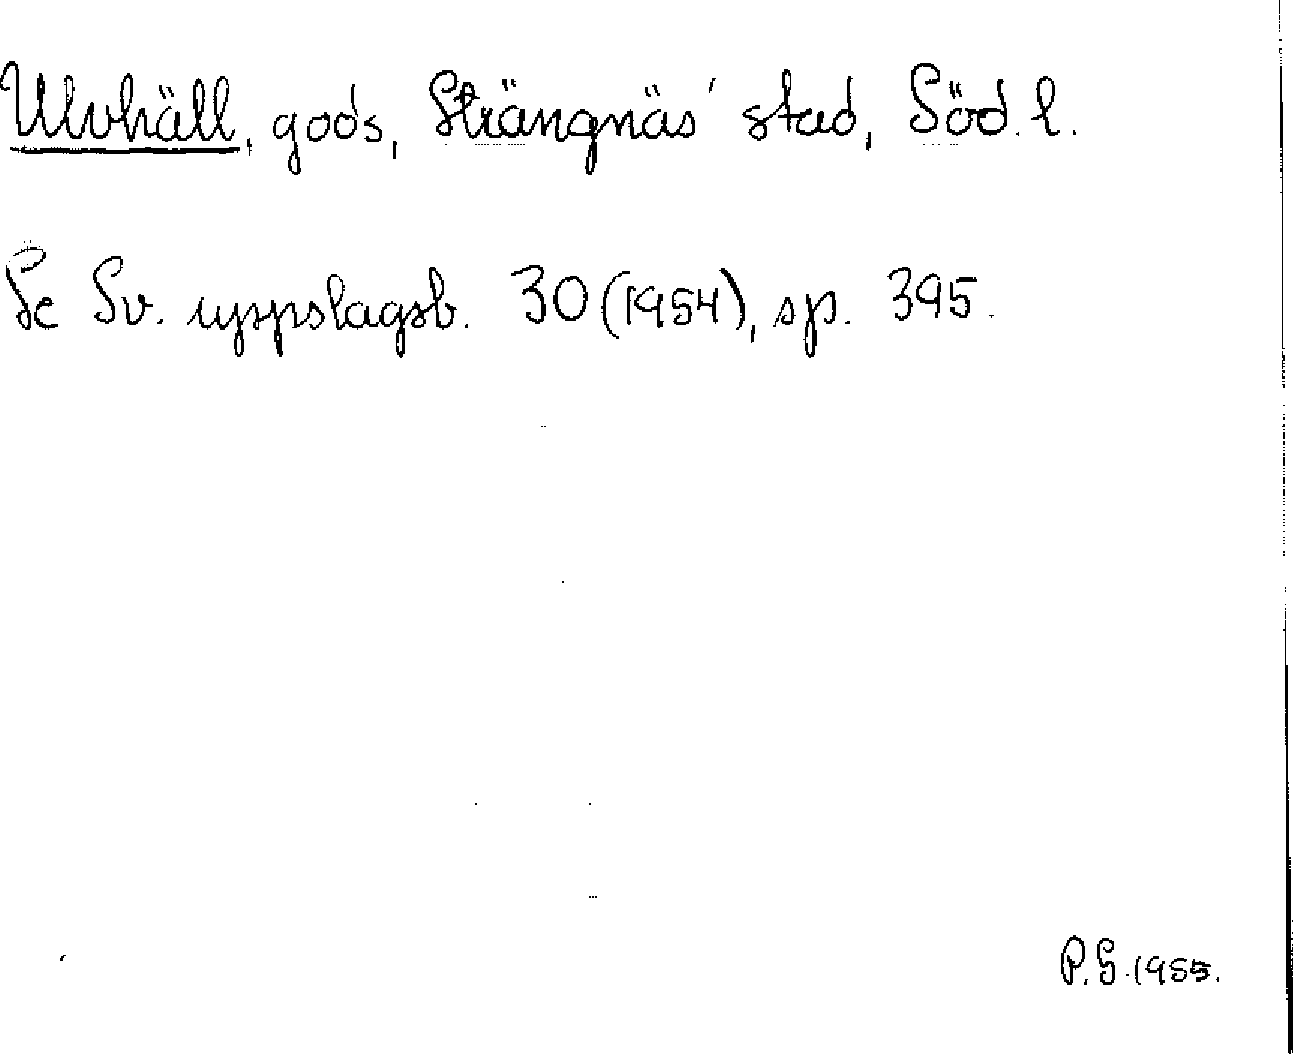 Ulvhäll, gods, Strängnäs' stad, Söd. l.
Se Sv. uppslagsb. 30 (1954), sp. 395.
P.G. 1955.